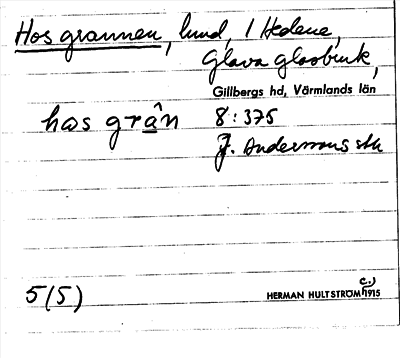 Hos grannen, lund, 1 Hedene,
Glava glasbruk,
Gillbergs hd, Värmlands län
has grân 8:375
J. Anderssons stk
5(5)
HERMAN HULTSTRÖM 1915